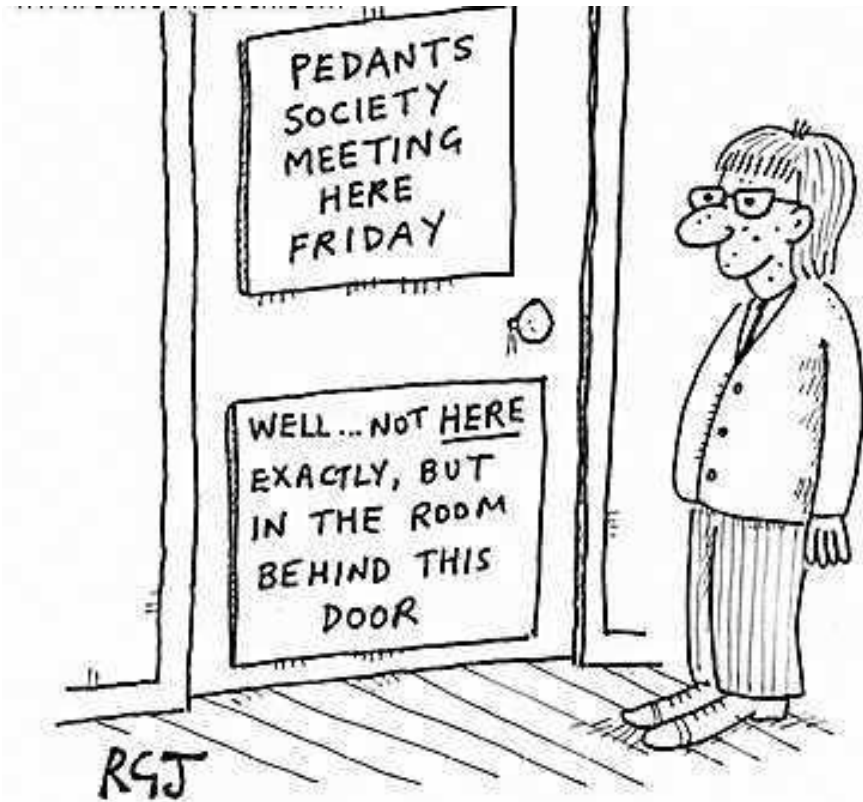 PEDANTS
SOCIETY
MEETING
HERE
FRIDAY
WELL...NOT HERE
EXACTLY, BUT
IN THE ROOM
BEHIND THIS
DOOR
RGJ